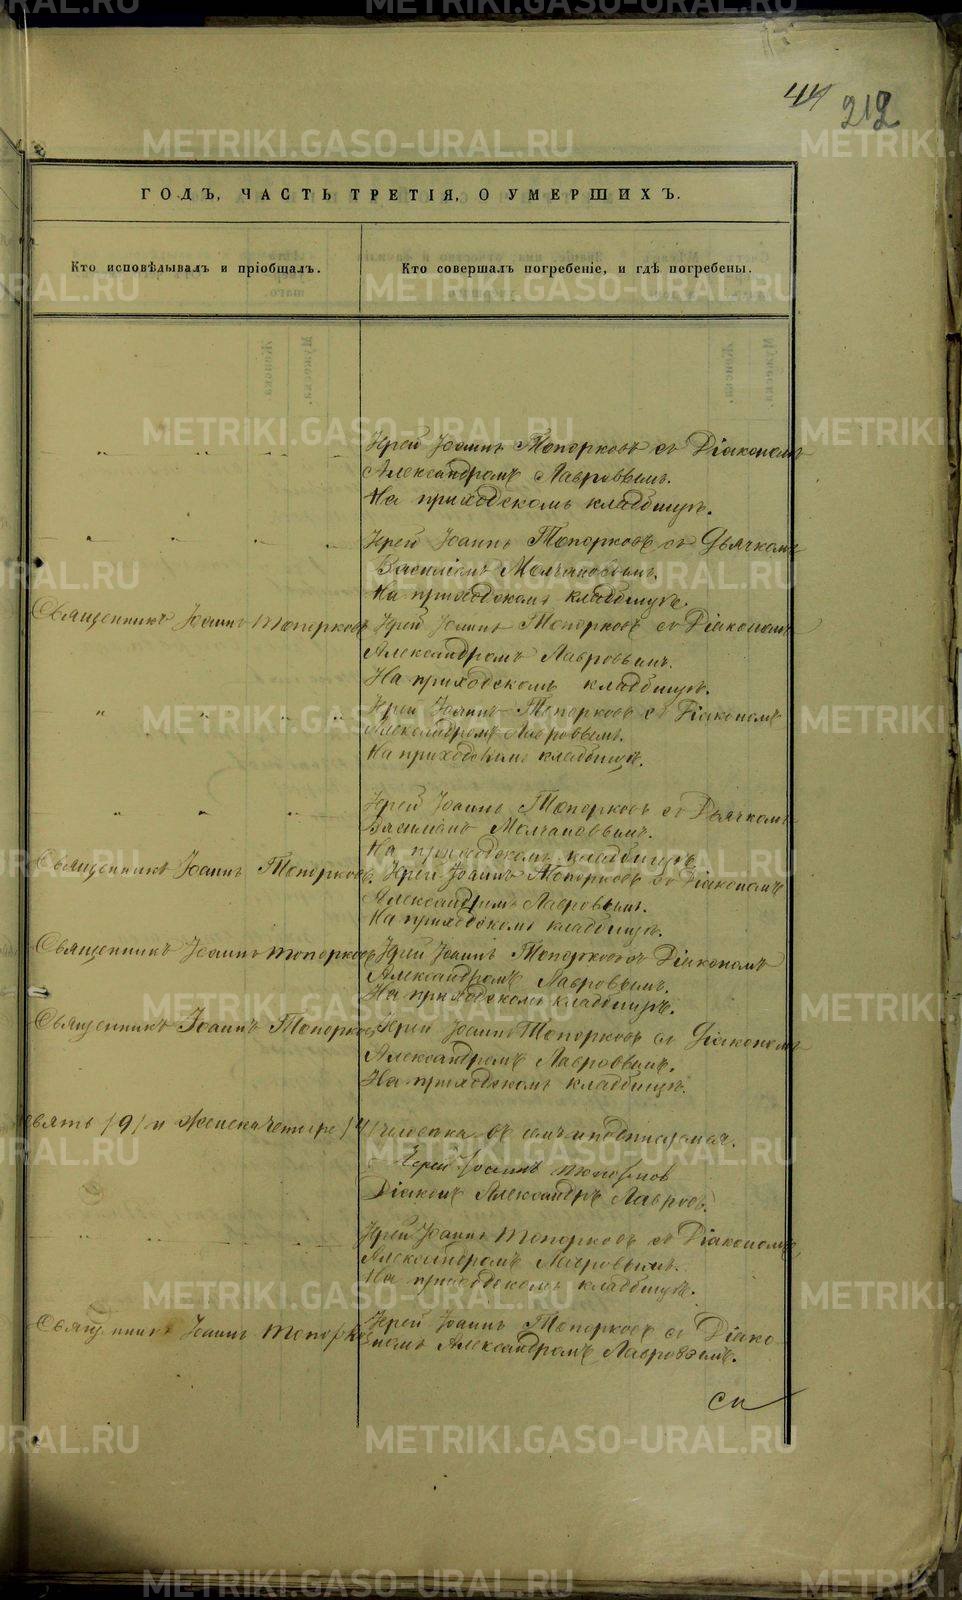 44 212
ГОДЪ, ЧАСТЬ ТРЕТІЯ, О УМЕРШИХЪ.
Кто исповѣдывалъ и пріобщалъ.
Кто совершалъ погребеніе, и гдѣ погребены.
Іерей Іоаннъ Топорковъ съ Діакономъ
Александромъ Лавровымъ.
На приходскомъ кладбищѣ.
Іерей Іоаннъ Топорковъ съ Дьячкомъ
Василіемъ Молчановымъ.
На приходскомъ кладбищѣ.
Священникъ Іоаннъ Топорковъ
Іерей Іоаннъ Топорковъ съ Діакономъ
Александромъ Лавровымъ.
На приходскомъ кладбищѣ.
Іерей Іоаннъ Топорковъ съ Діакономъ
Александромъ Лавровымъ.
На приходскомъ кладбищѣ.
Іерей Іоаннъ Топорковъ съ Дьячкомъ
Василіемъ Молчановымъ.
На приходскомъ кладбищѣ
Священникъ Іоаннъ Топорковъ.
Іерей Іоаннъ Топорковъ съ Діакономъ
Александромъ Лавровымъ.
На приходскомъ кладбищѣ.
Священникъ Іоаннъ Топорковъ
Іерей Іоаннъ Топорковъ съ Діакономъ
Александромъ Лавровымъ.
На приходскомъ кладбищѣ.
Священникъ Іоаннъ Топорковъ
Іерей Іоаннъ Топорковъ съ Діакономъ
Александромъ Лавровымъ.
На приходскомъ кладбищѣ.
евять /9/ и Женска четыре /4/ человека въ семъ и подписуемся.
Іерей Іоаннъ Топорковъ
Діаконъ Александръ Лавровъ.
Іерей Іоаннъ Топорковъ съ Діакономъ
Александромъ Лавровымъ.
На приходскомъ кладбищѣ.
Священникъ Іоаннъ Топорков
Іерей Іоаннъ Топорковъ съ Діако-
номъ Александромъ Лавровымъ.
METRIKI.GASO-URAL.RU